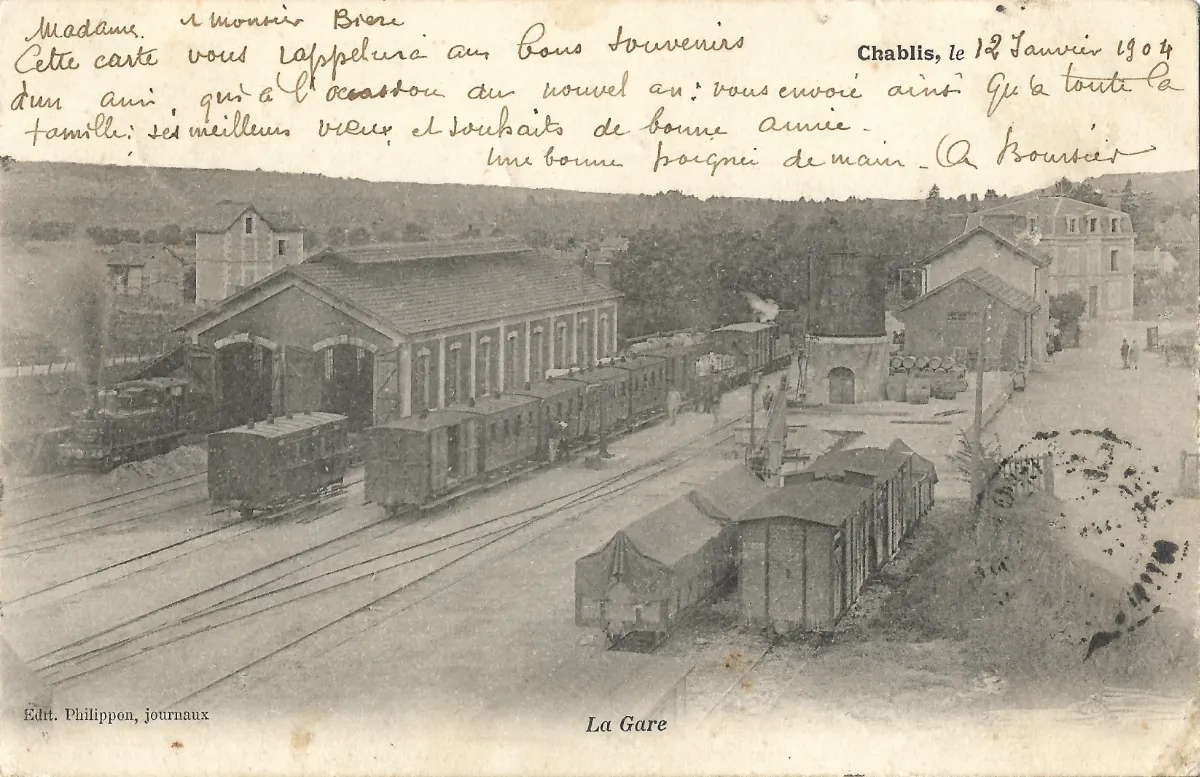 Madame et monsieur Biere
Cette carte vous rappelera aux bons souvenirs
Chablis, le 12 Janvier 1904
d'un ami, qui à l'occasion du nouvel an: vous envoie ainsi qu'a toute la
famille: ses meilleurs vœux et souhaits de bonne année.
Une bonne poignée de main - A Boursier
Edit. Philippon, journaux
La Gare